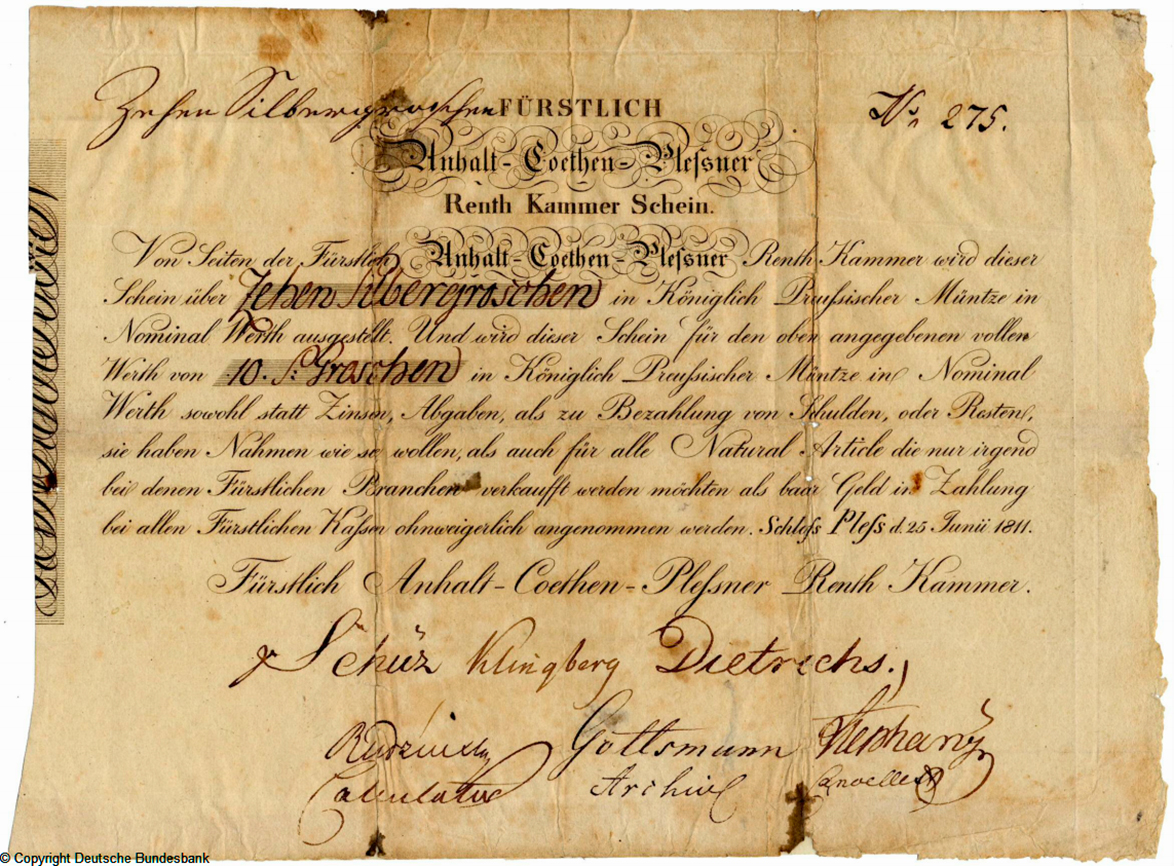 Zehen Silbergroschen FÜRSTLICH No 275.
Anhalt-Coethen-Pleſsner
Renth Kammer Schein.
Von Seiten der Fürstlich Anhalt-Coethen-Pleſsner Renth Kammer wird dieser
Schein über Zehen Silbergroschen in Königlich Preuſsischer Müntze in
Nominal Werth ausgestelt. Und wird dieser Schein für den oben angegebenen vollen
Werth von 10. S: Groschen in Königlich Preuſsischer Müntze in Nominal
Werth sowohl statt Zinsen, Abgaben, als zu Bezahlung von Schulden, oder Resten,
sie haben Nahmen wie se wollen, als auch für alle Natural Article die nur irgend
bei denen Fürstlichen Branchen verkaufft werden möchten als baar Geld in Zahlung
bei allen Fürstlichen Kaſsen ohnweigerlich angenommen werden. Schloſs Pleſs d. 25 Junii 1811.
Fürstlich Anhalt-Coethen-Pleſsner Renth Kammer.
Schüz Klingberg Dietrichs.
Gottsmann Stephany
Calculator Archiv
© Copyright Deutsche Bundesbank